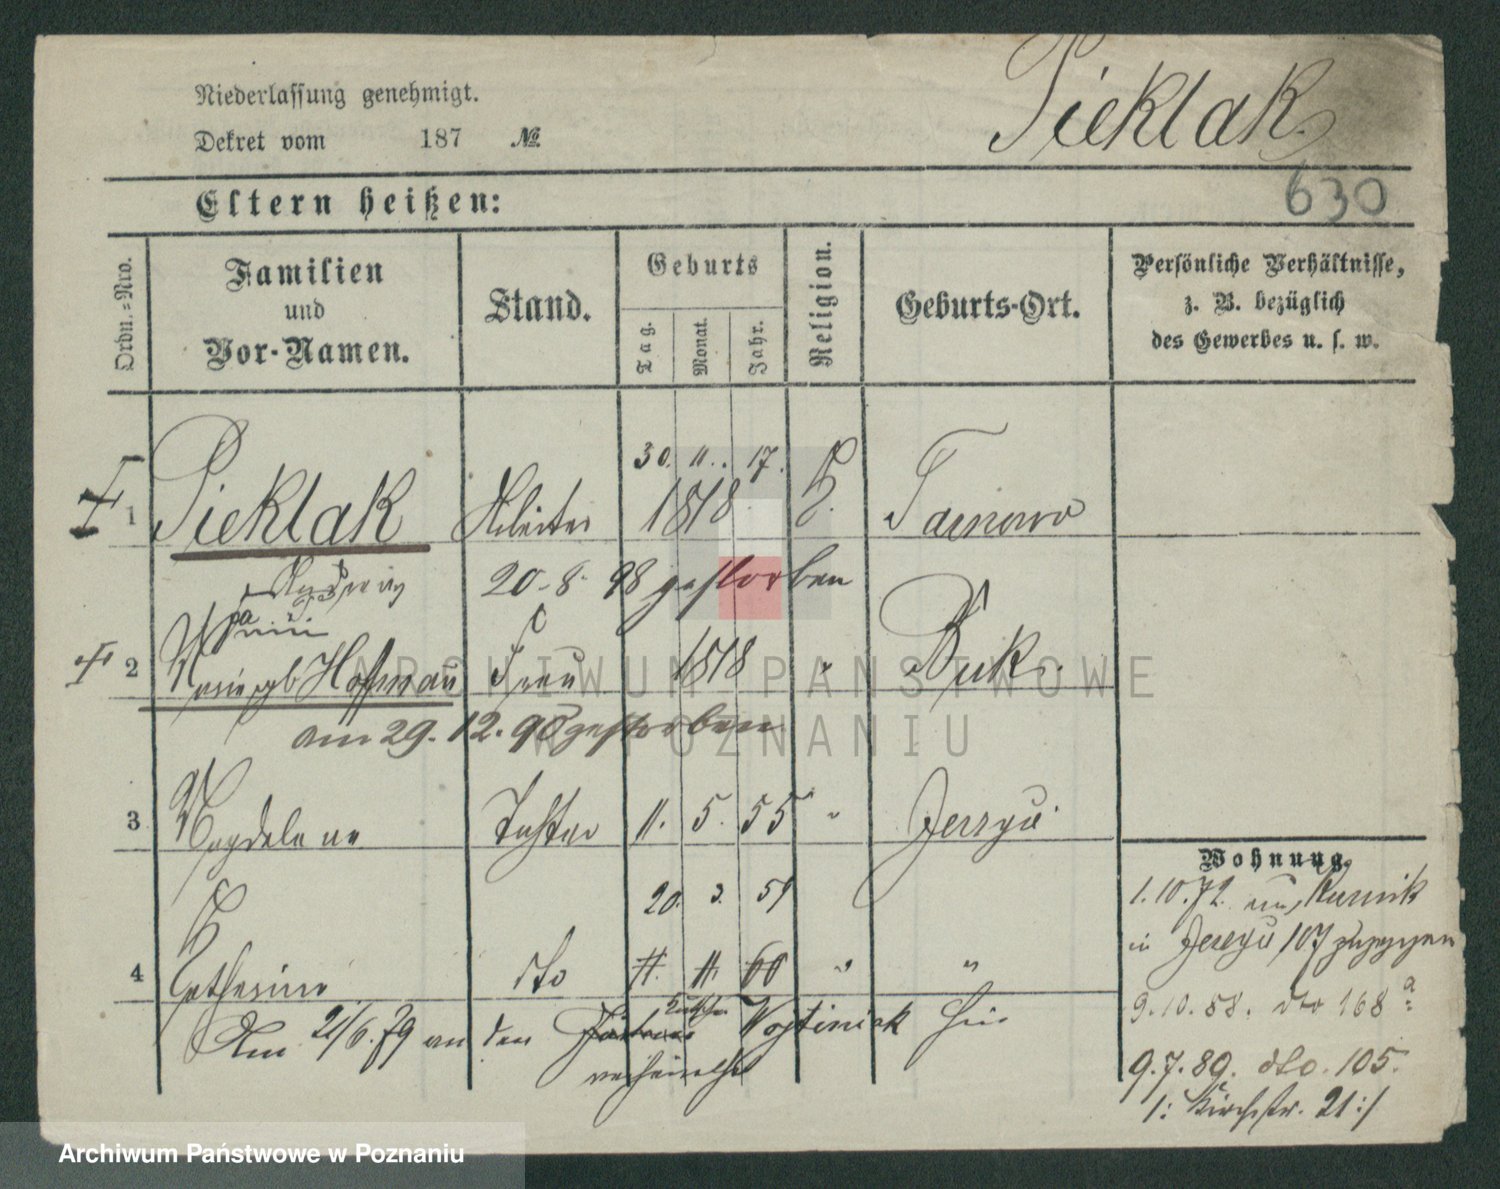 Pieklak.
Niederlassung genehmigt.
Dekret vom 187 №
630
Eltern heißen:
Ordn.-Nro.
Familien
und
Vor-Namen.
Stand.
Geburts
Tag.
Monat.
Jahr.
Religion.
Geburts-Ort.
Persönliche Verhältnisse,
z. B. bezüglich
des Gewerbes u. s. w.
30. 11. 17.
1 Pieklak Arbeiter 1818 Tarnowo
20.8.98 gestorben
2 Hoffmann Frau 1818 " Buk.
am 29.12.98 gestorben
3 Magdalena Tochter 11. 5. 55 " Jerzyce
20. 3. 59
4 Katharina dto 11. 11. 60 " "
Am 21/6.79 an den Wojtinick hier
verheirathet
Wohnung.
1.10.72 Kurnik
in 107 zugezogen
9.10.88. dto 168 a
9.7.89. dto. 105.
/: Kirchstr. 21 :/
ARCHIWUM PAŃSTWOWE
W POZNANIU
Archiwum Państwowe w Poznaniu